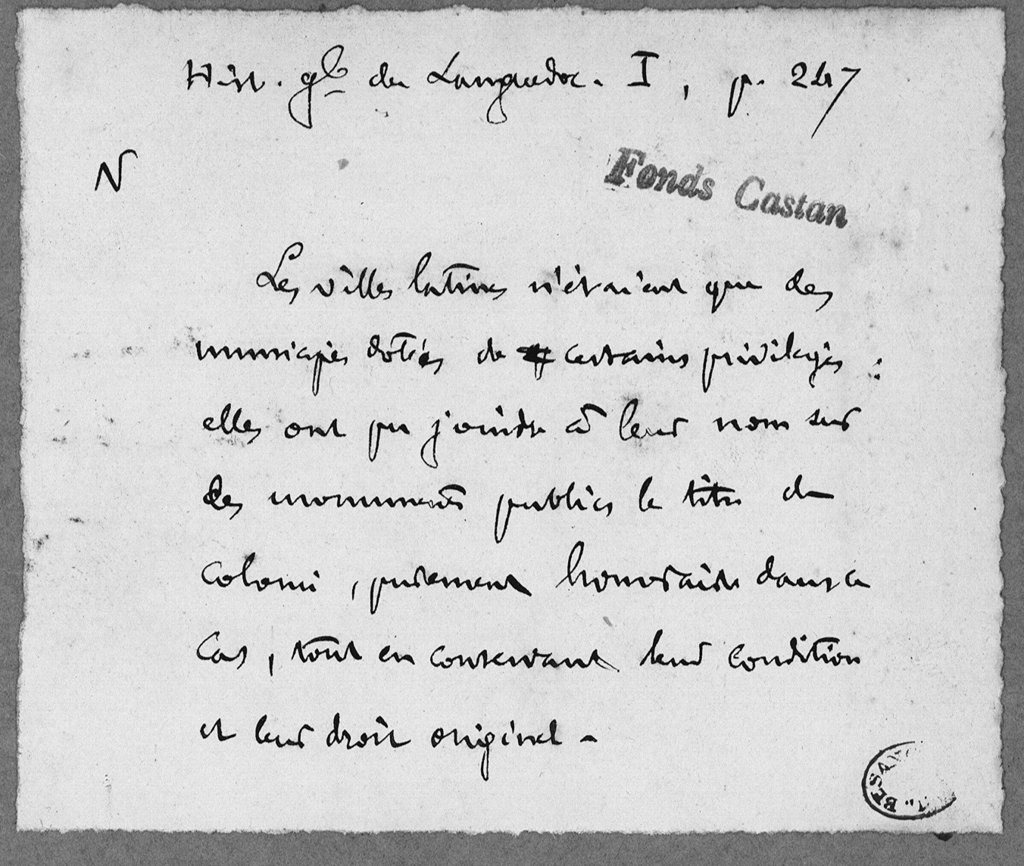 Hist. gle du Languedoc. I, p. 247
N
Fonds Castan
Les villes latines n'étaient que des
municipes dotés de certains privilèges :
elles ont pu joindre à leur nom sur
des monuments publics le titre de
colonie, purement honoraire dans ce
cas, tout en conservant leur condition
et leur droit originel.
BESAN